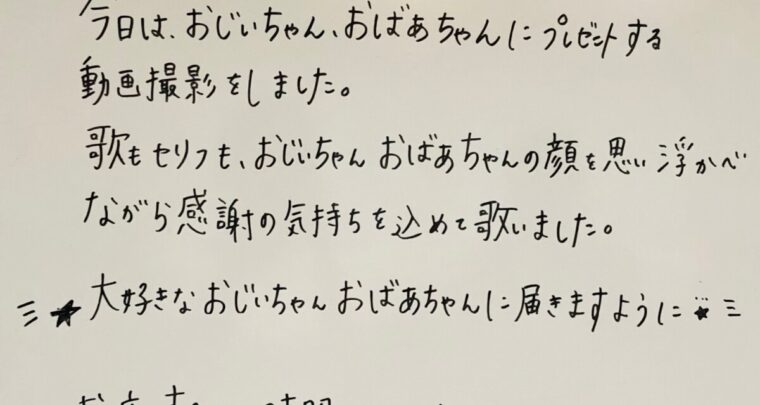 今日は、おじいちゃん、おばあちゃんにプレゼントする
動画撮影をしました。
歌もセリフも、おじいちゃん おばあちゃんの顔を思い浮かべ
ながら感謝の気持ちを込めて歌いました。
大好きなおじいちゃん おばあちゃんに届きますように